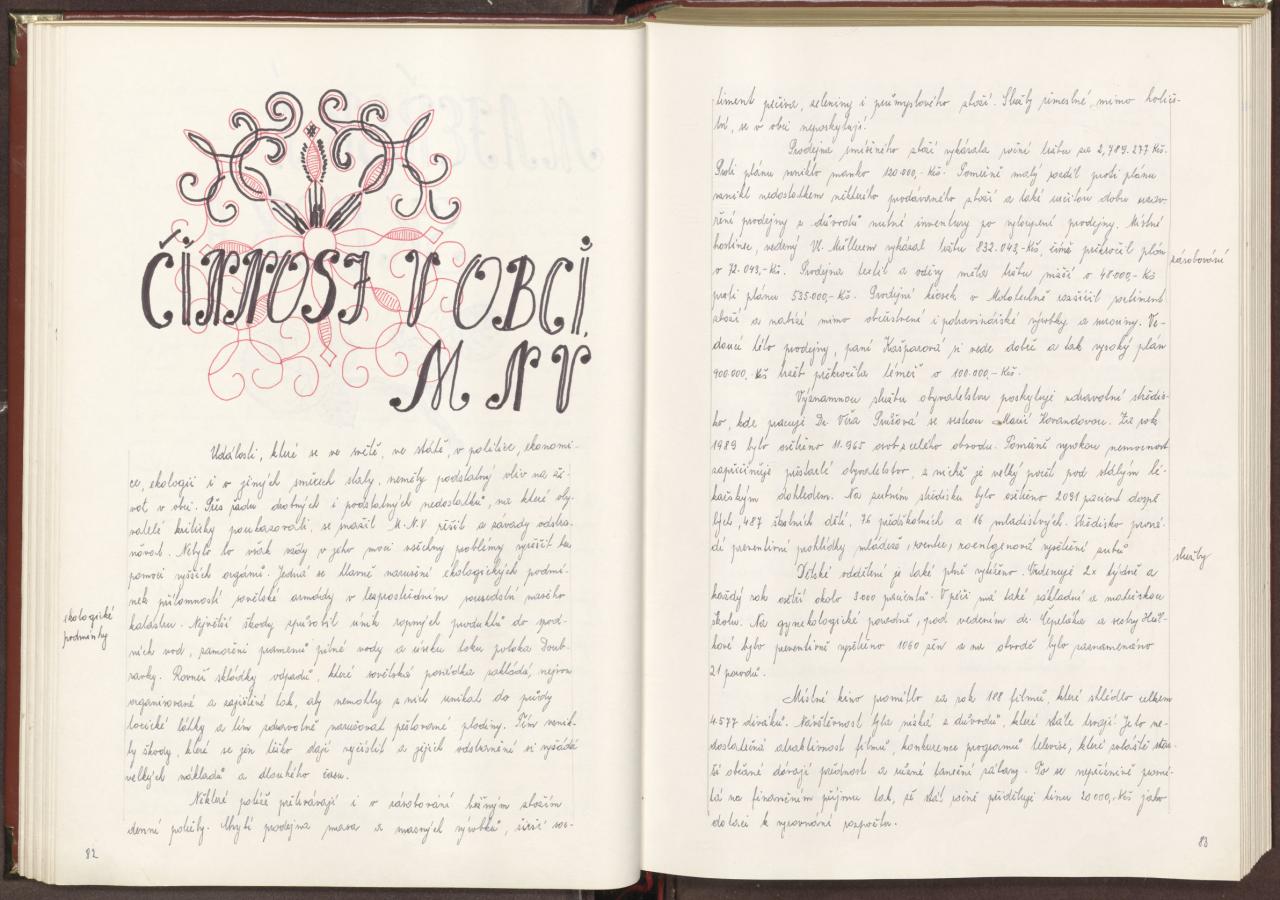 ČINNOST V OBCI.
M N V
Události, které se ve světě, ve státě, v politice, ekonomi-
ce, ekologii i v jiných směrech staly, neměly podstatný vliv na ži-
vot v obci. Přes řadu drobných i podstatných nedostatků, na které oby-
vatelé kriticky poukazovali, se snažil M.N.V řešit a závady odstra-
ňovat. Nebylo to však vždy v jeho moci všechny problémy vyřešit bez
pomoci vyšších orgánů. Jedná se hlavně narušení ekologických podmí-
nek přítomností sovětské armády v bezprostředním sousedství našeho
ekologické
podmínky
katastru. Největší škody způsobil únik ropných produktů do spod-
ních vod, zamoření pramenů pitné vody a úseku toku potoka Doub-
ravky. Rovněž skládky odpadů, které sovětská posádka zakládá, nejsou
organizované a zajištěné tak, aby nemohly z nich unikat do půdy
toxické látky a tím zdravotně narušovat pěstované plodiny. Tím vznik-
ly škody, které se jen těžko dají vyčíslit a jejich odstranění si vyžádá
velkých nákladů a dlouhého času.
Některé potíže přetrvávají i v zásobování běžným zbožím
denní potřeby. Chybí prodejna masa a masných výrobků, širší sor-
82
timent pečiva, zeleniny i průmyslového zboží. Služby řemeslné, mimo holič-
ství, se v obci neposkytují.
Prodejna smíšeného zboží vykázala roční tržbu za 2,789.277 Kčs.
Proti plánu vzniklo manko 120.000,- Kčs. Poměrně malý rozdíl proti plánu
vznikl nedostatkem některého prodávaného zboží a také určitou dobu uzav-
ření prodejny z důvodů nutné inventury po vyloupení prodejny. Místní
hostinec, vedený Vl. Müllerem vykázal tržbu 832.043,-Kčs, čímž překročil plán
zásobování
o 72.043,-Kčs. Prodejna textil a oděvy měla tržbu nižší o 48.000,- Kčs
proti plánu 535.000,-Kčs. Prodejní kiosek v rozšířil sortiment
zboží a nabízí mimo občerstvení i potravinářské výrobky a uzeniny. Ve-
doucí této prodejny, paní Kašparové si vede dobře a tak vysoký plán
900.000,-Kčs tržeb překročila téměř o 100.000,-Kčs.
Významnou službu obyvatelstvu poskytuje zdravotní středis-
ko, kde pracuje Dr Věra Prušová se sestrou Marií Hovandovou. Za rok
1989 bylo ošetřeno 11.965 osob z celého obvodu. Poměrně vysokou nemocnost
zapříčiňuje přestárlé obyvatelstvo, z nichž je velký počet pod stálým lé-
kařským dohledem. Na zubním středisku bylo ošetřeno 2091 pacient dospě-
lých, 487 školních dětí, 76 předškolních a 16 mladistvých. Středisko prová-
dí preventivní prohlídky mládeže, rovněž, roentgenová vyšetření zubů
služby
Dětské oddělení je také plně vytíženo. Ordinuje 2x týdně a
každý rok ošetří okolo 3.000 pacientů. V péči má také základní a mateřskou
školu. Na gynekologické poradně, pod vedením dr. Čepeláka a sestry
bylo preventivně vyšetřeno 1060 žen a na obvodě bylo zaznamenáno
21 porodů.
Místní kino promítlo za rok 188 filmů, které shlédlo celkem
4.577 diváků. Návštěvnost byla nízká z důvodů, které stále trvají. Je to ne-
dostatečná atraktivnost filmů, konkurence programů televize, které zvláště star-
ší občané dávají přednost a různé taneční zábavy. To se nepříznivě promí-
tá na finančním příjmu tak, že stát ročně přiděluje kinu 20.000,-Kčs jako
dotaci k vyrovnání rozpočtu.
83